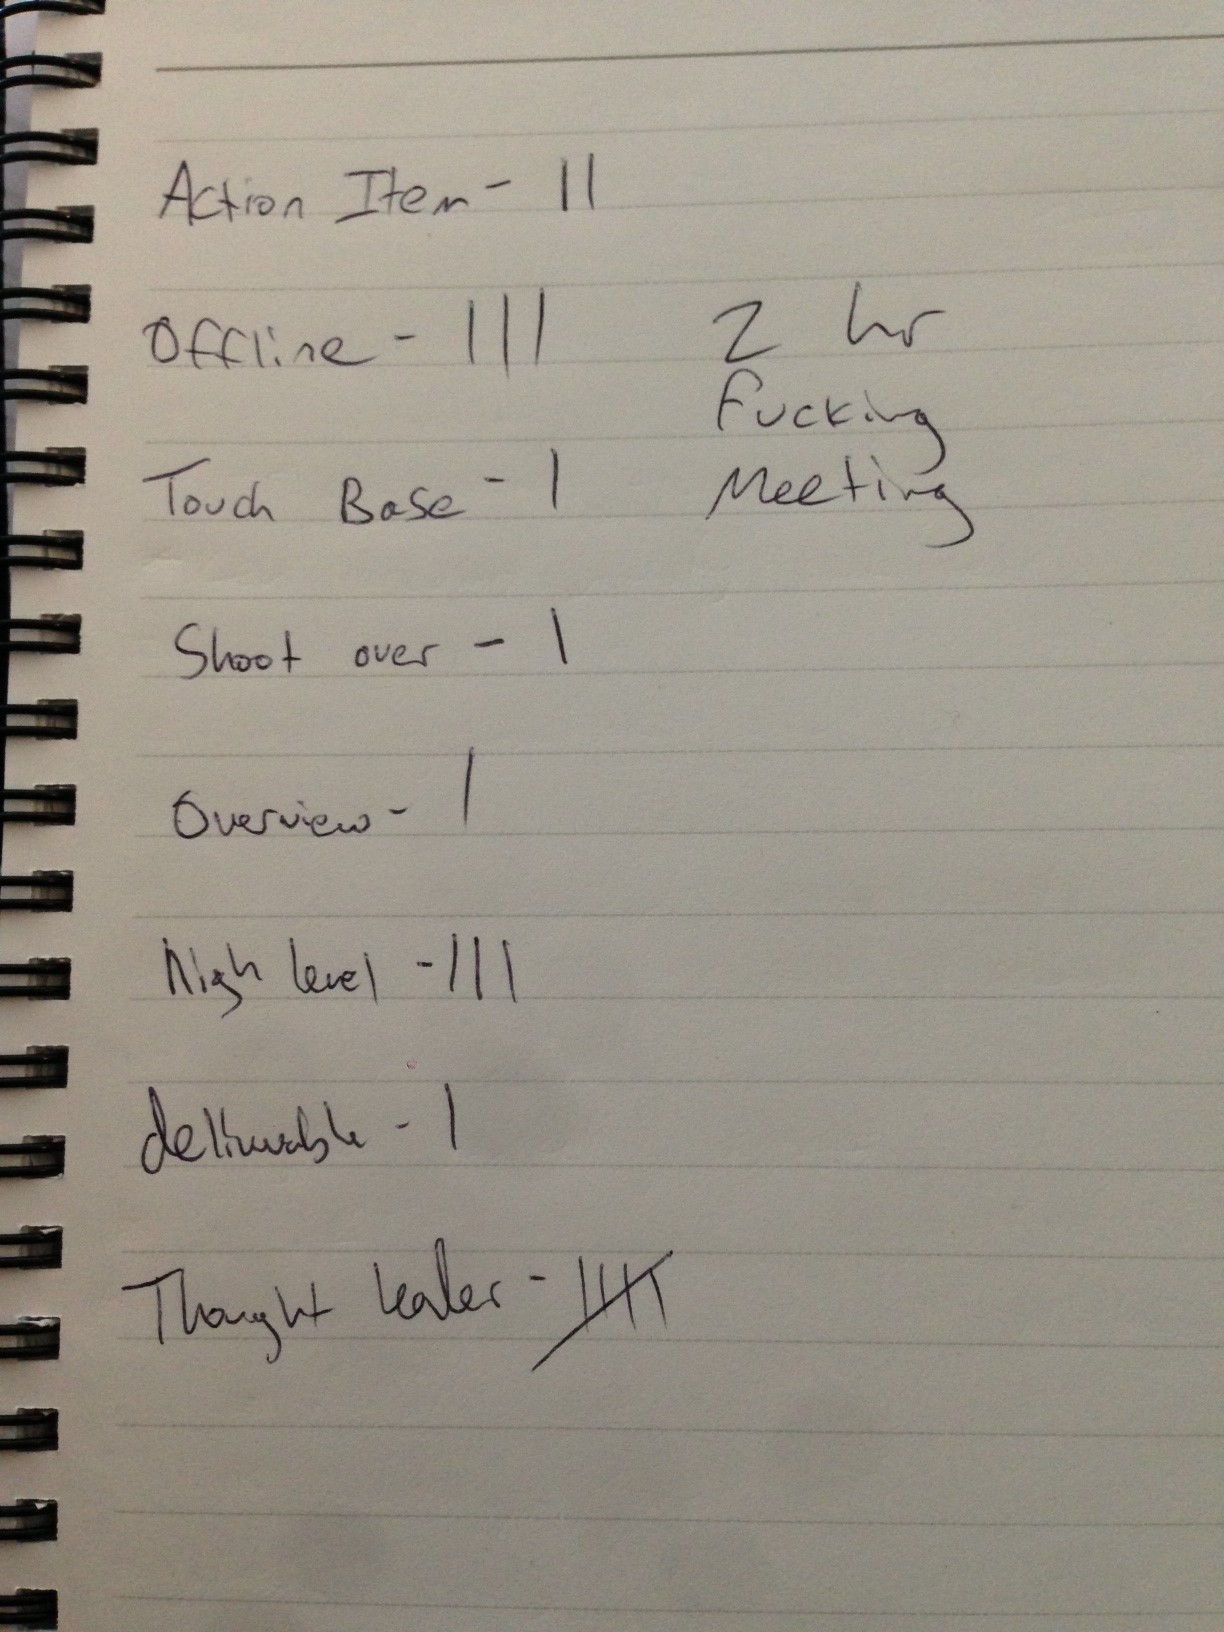 Action Item - ||
Offline - |||
2 hr
Fucking
Meeting
Touch Base - |
Shoot over - |
Overview - |
high level - |||
deliverable - |
Thought leader - 卌